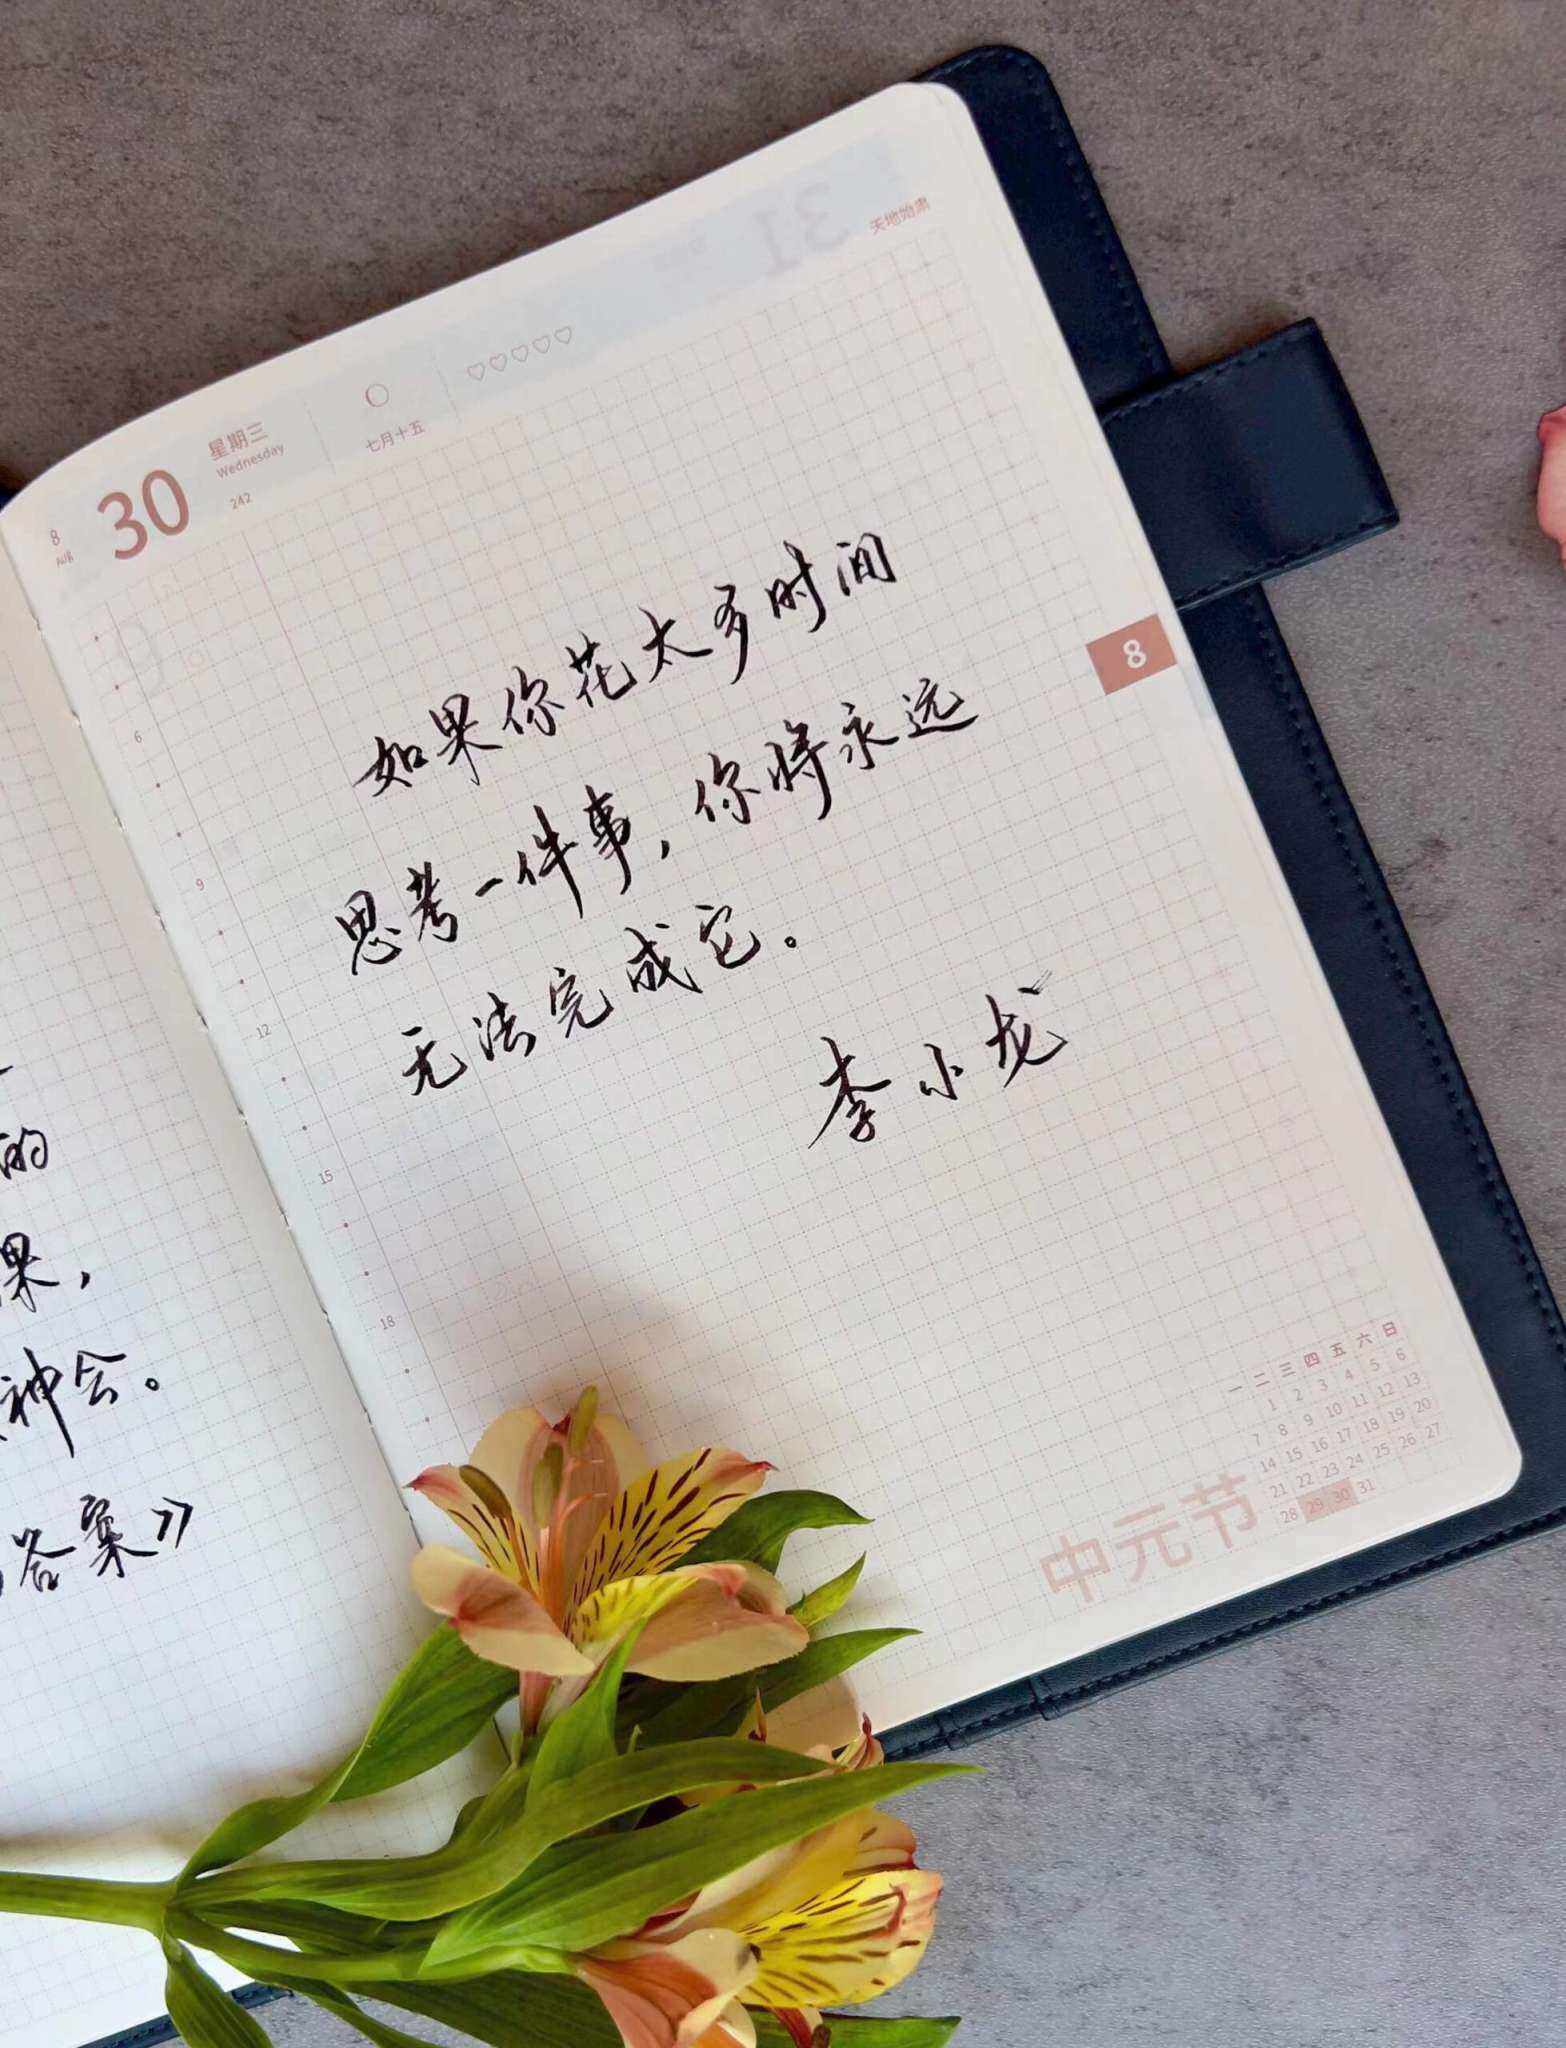 的
果，
神会。
答案》
8
Aug
30
星期三
Wednesday
242
七月十五
♡♡♡♡♡
31
天地始肃
如果你花太多时间
思考一件事，你将永远
无法完成它。
李小龙
6
9
12
15
18
8
中元节
一 二 三 四 五 六 日
1 2 3 4 5 6
7 8 9 10 11 12 13
14 15 16 17 18 19 20
21 22 23 24 25 26 27
28 29 30 31